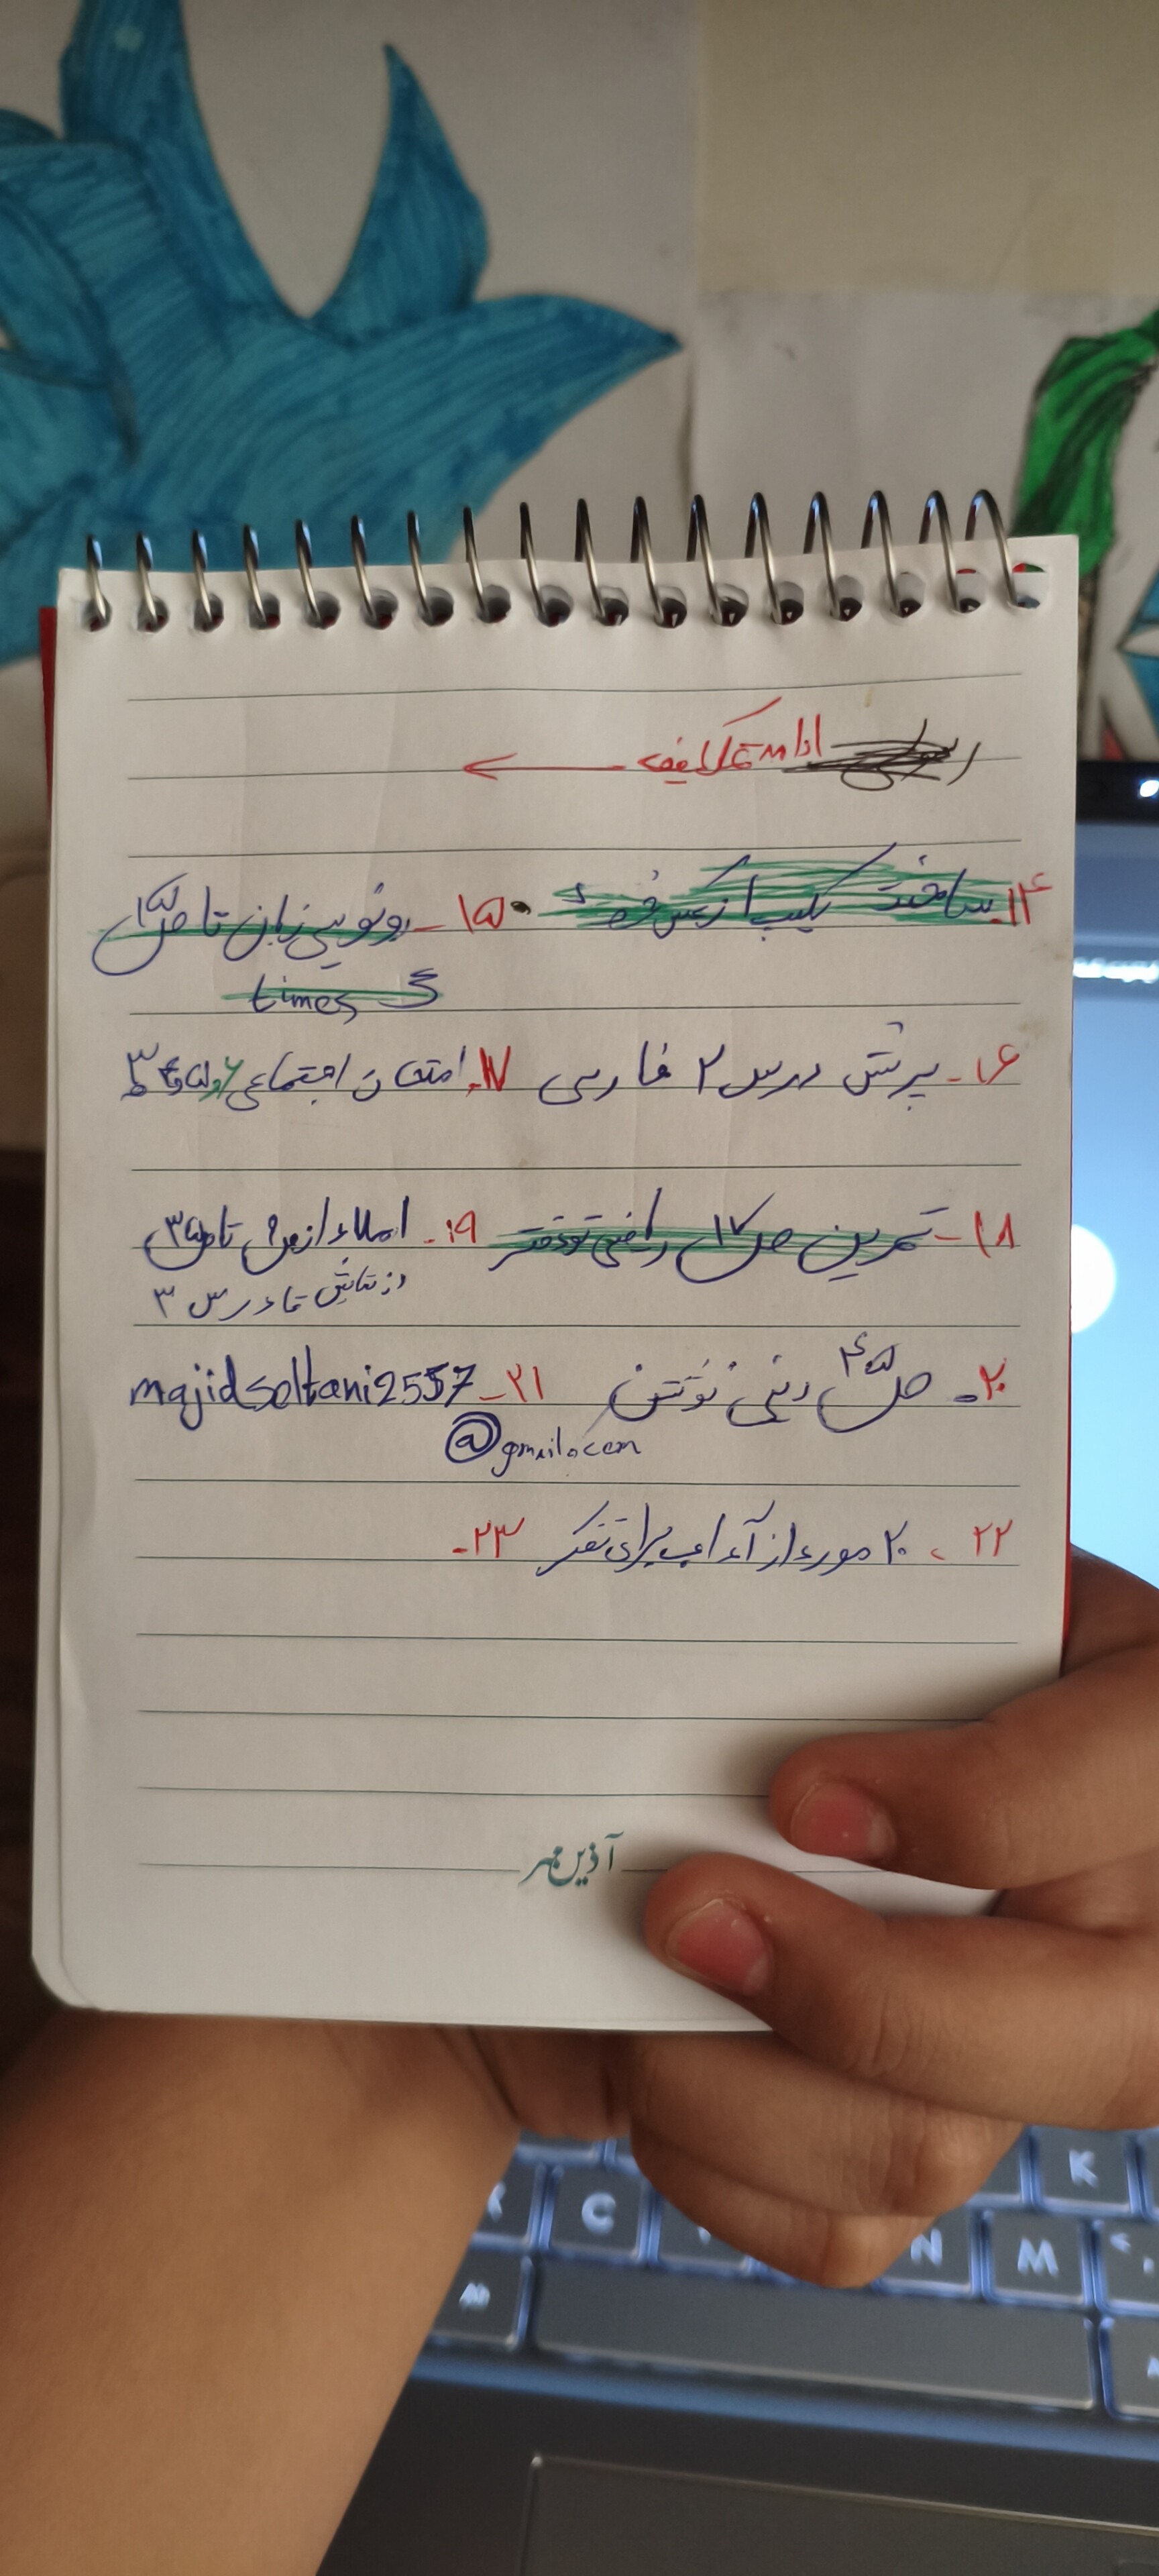 ادامه تکالیف
۱۴- ساخت کلیپ از عکس خود ۱۵- رونویسی زبان تا ص ۱۵
5 times
۱۶- پرسش درس ۲ فارسی ۱۷- امتحان اجتماعی ۳
۱۸- تمرین ص ۱۷ ریاضی تو دفتر ۱۹- املاء از ص ۹ تا ص ۳۵
از نیایش تا درس ۳
۲۰- ص ۴۵ دینی نوشتن ۲۱- majidseltani2557
@gmail.com
۲۲- ۲۰ مورد از آداب برای تفکر ۲۳-
آذین مهر
K
C
N M
Alt